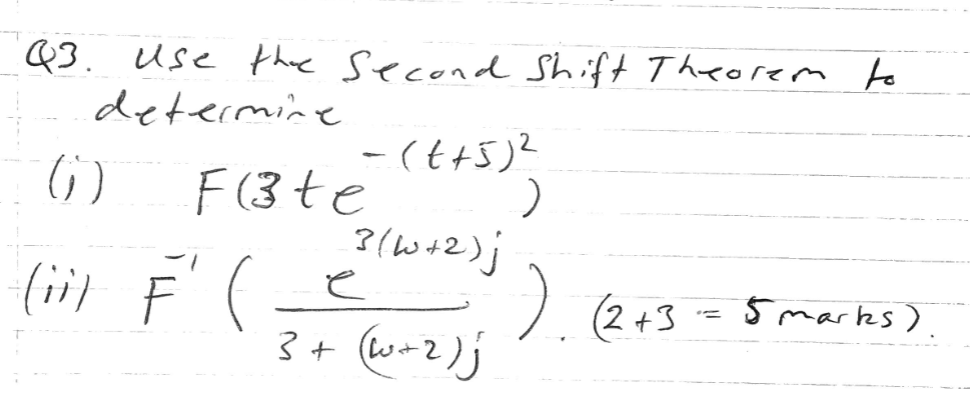 Q3. Use the Second Shift Theorem to
determine
(i) F(3te^{-(t+5)^2})
(ii) F^{-1}(e^{3(w+2)j} / (3 + (w+2)j)). (2+3 = 5 marks).